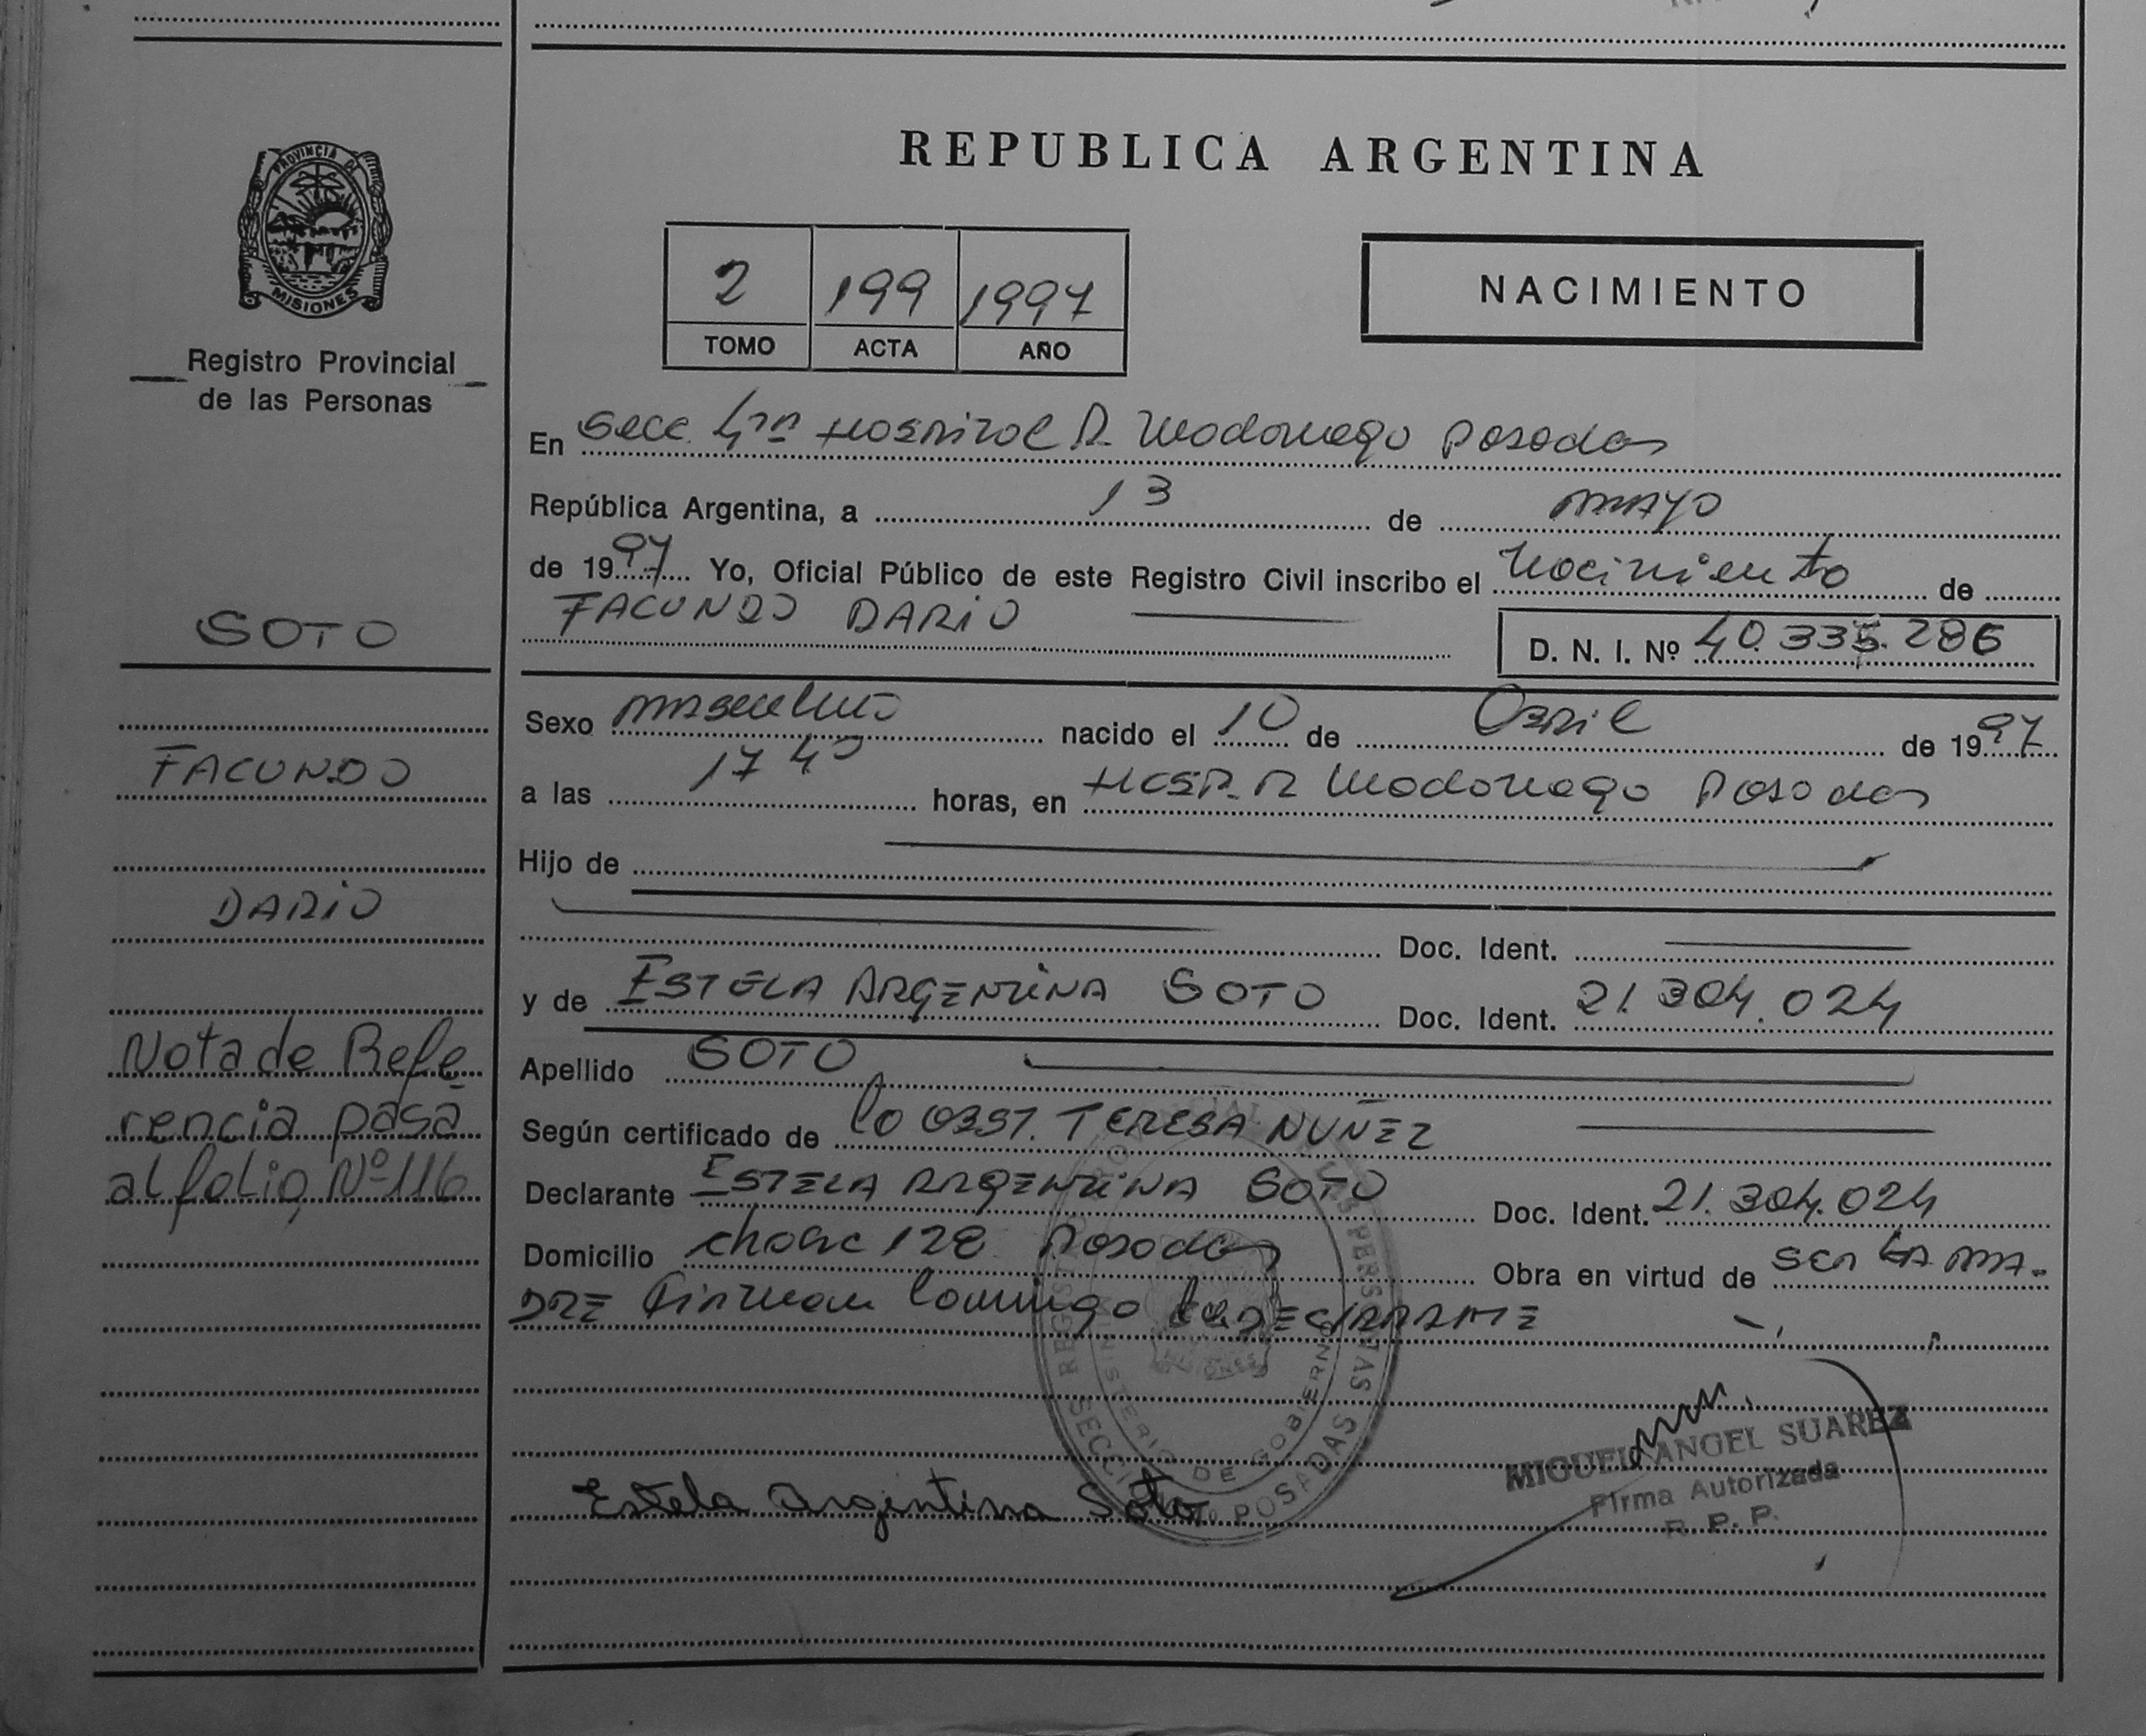 PROVINCIA DE
MISIONES
Registro Provincial
de las Personas
SOTO
FACUNDO
DARIO
Nota de Refe
rencia pasa
al folio Nº 116
REPUBLICA ARGENTINA
2 199 1997
TOMO ACTA AÑO
NACIMIENTO
En Secc 4ta Hospital R. Madariaga Posadas
República Argentina, a 13 de MAYO
de 1997 Yo, Oficial Público de este Registro Civil inscribo el Nacimiento de
FACUNDO DARIO
D. N. I. Nº 40.335.286
Sexo masculino nacido el 10 de Abril de 1997
a las 17 40 horas, en Hosp. R Madariaga Posadas
Hijo de
Doc. Ident.
y de ESTELA ARGENTINA SOTO Doc. Ident. 21.304.024
Apellido SOTO
Según certificado de la Obst. TERESA NUÑEZ
Declarante ESTELA ARGENTINA SOTO Doc. Ident. 21.304.024
Domicilio Chac 128 Posadas Obra en virtud de SER LA MA-
DRE Firman conmigo DECLARANTE
REGISTRO PROVINCIAL DE LAS PERSONAS
MINISTERIO DE GOBIERNO
MISIONES
POSADAS
Estela Argentina Soto
MIGUEL ANGEL SUAREZ
Firma Autorizada
R. P. P.